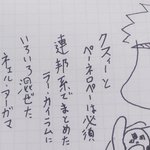 クスィーと
ペーネロペーは必須
連邦系でまとめた
ラー・カイラムに
いろいろ混ぜた
ネェル・アーガマ